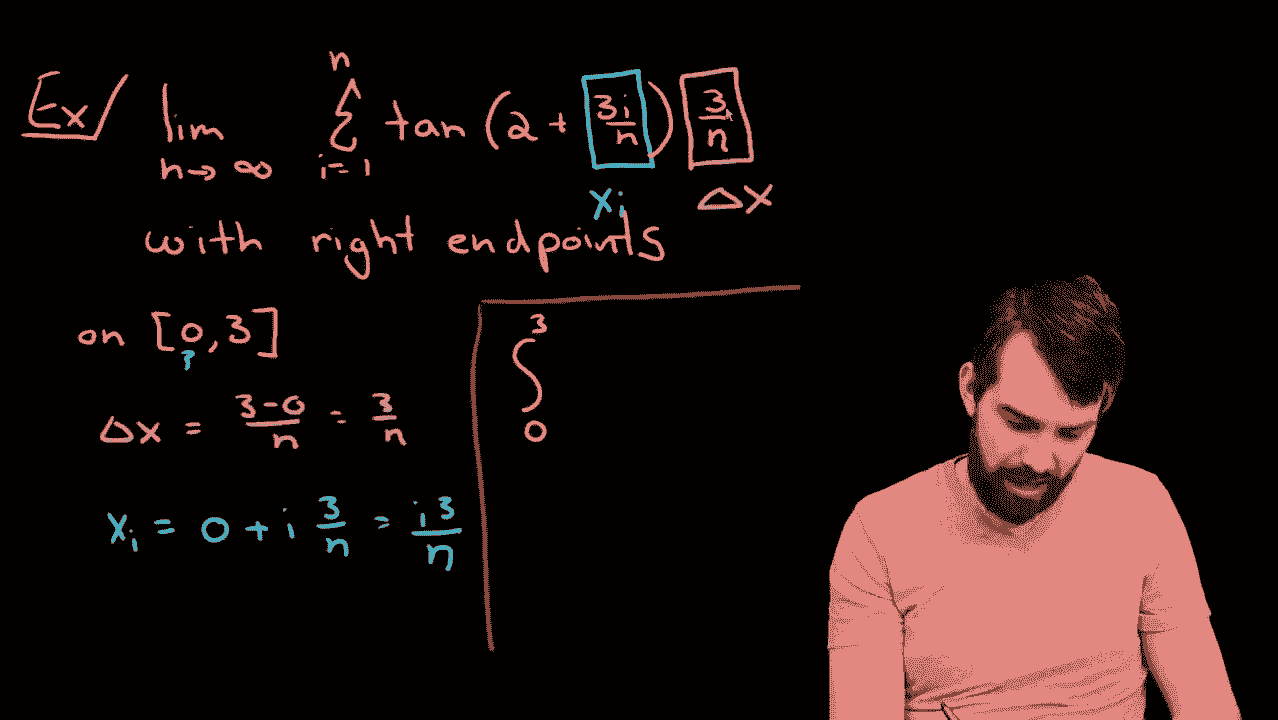 Ex/ lim n→∞ n Σ i=1 tan (2 + 3i/n) 3/n
xᵢ Δx
with right endpoints
on [0,3]
?
Δx = 3-0/n = 3/n
xᵢ = 0 + i 3/n = i3/n
∫ 3 0